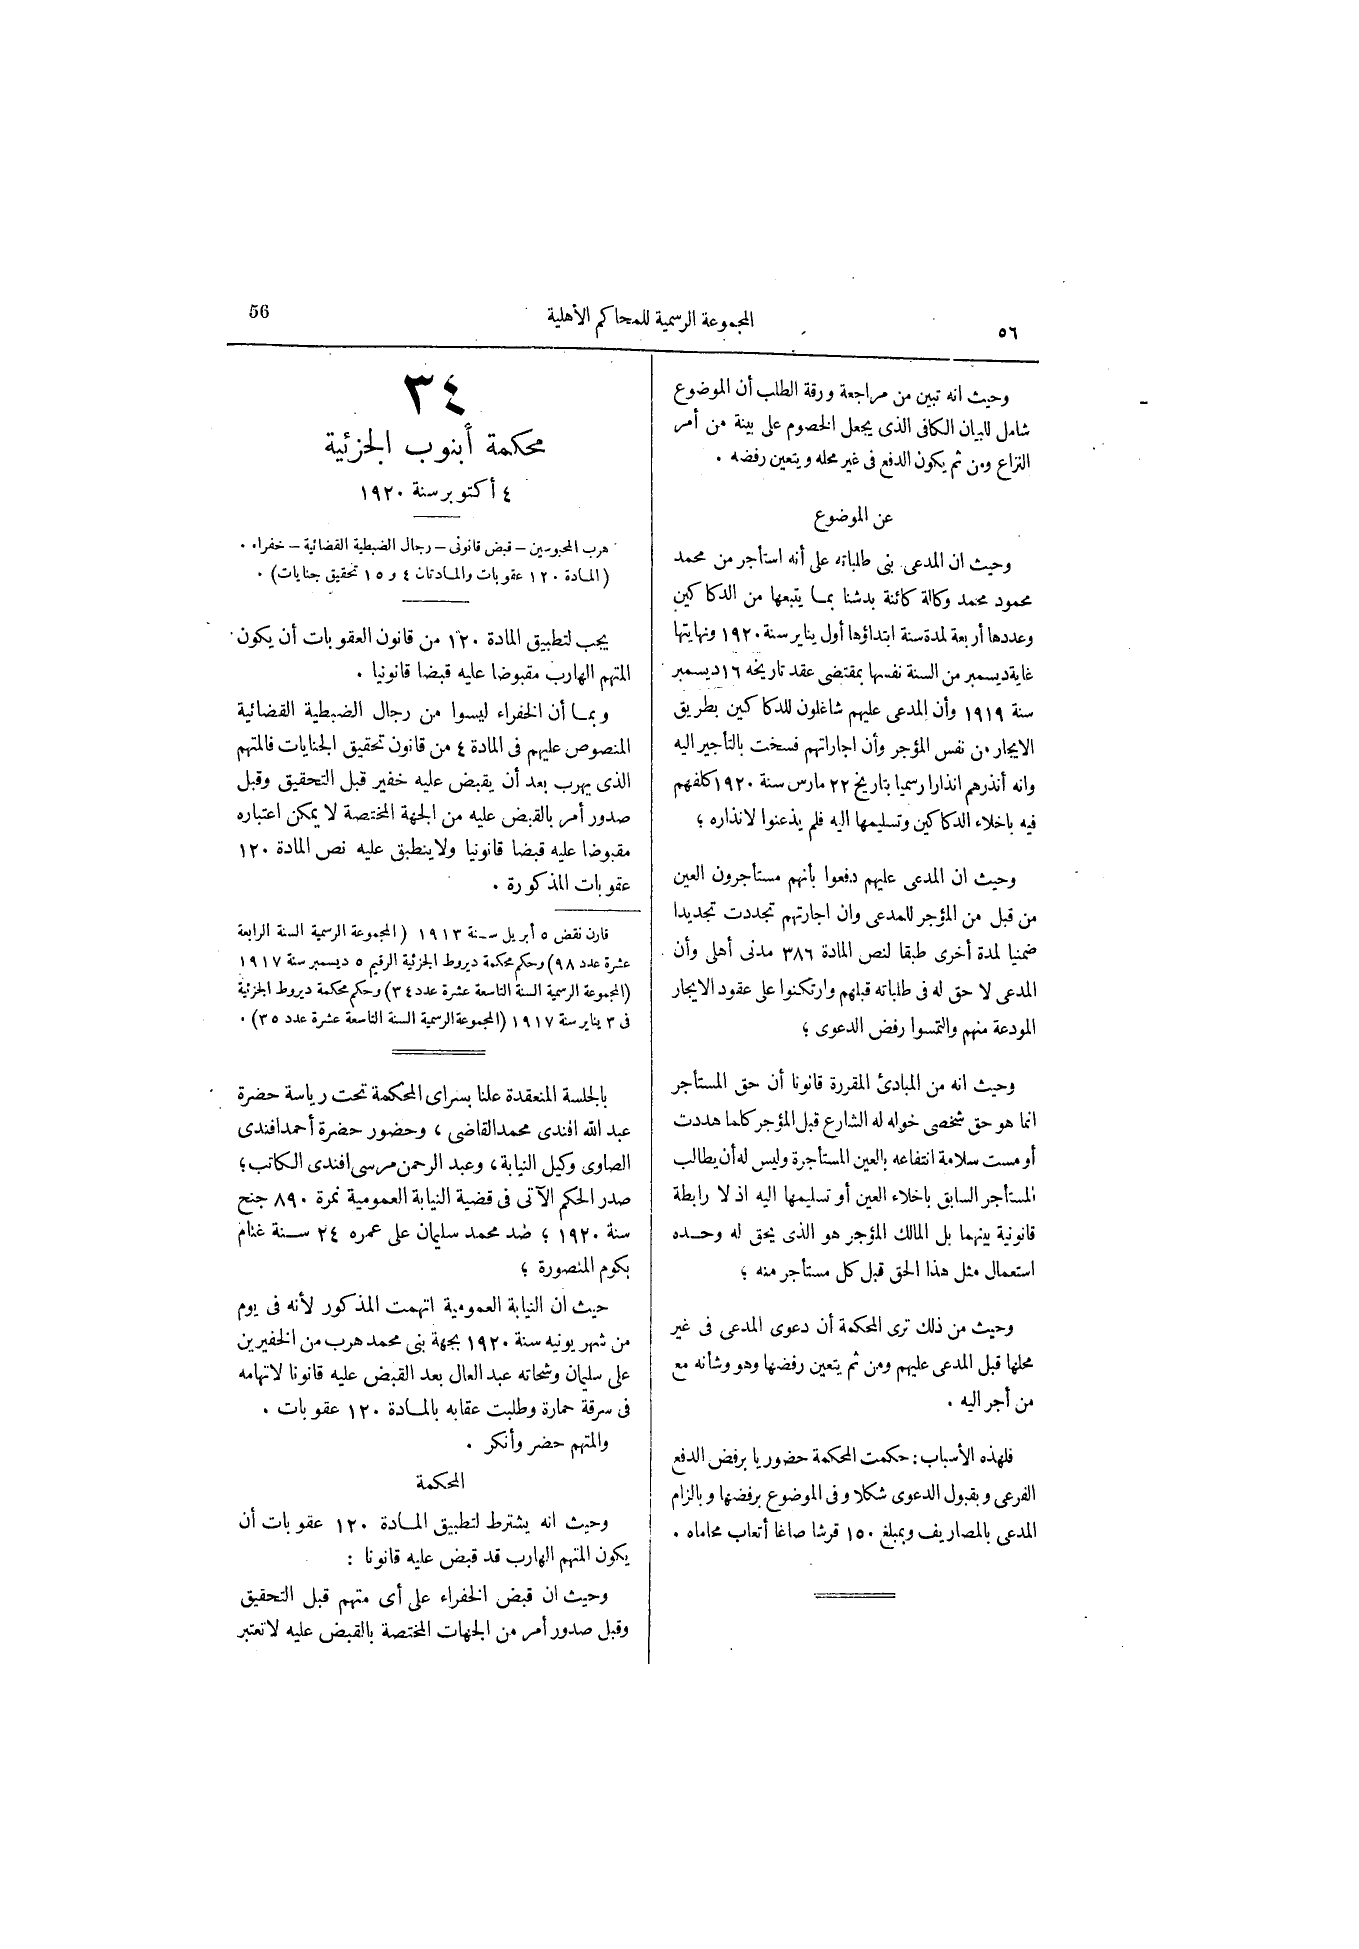 ٥٦
المجموعة الرسمية للمحاكم الأهلية
56
وحيث انه تبين من مراجعة ورقة الطلب أن الموضوع
شامل للبيان الكافى الذى يجعل الخصوم على بينة من أمر
النزاع ومن ثم يكون الدفع فى غير محله ويتعين رفضه .
عن الموضوع
وحيث ان المدعى بنى طلباته على أنه استأجر من محمد
محمود محمد وكالة كائنة بدشنا بما يتبعها من الدكاكين
وعددها أربعة لمدة سنة ابتداؤها أول يناير سنة ١٩٢٠ ونهايتها
غاية ديسمبر من السنة نفسها بمقتضى عقد تاريخه ١٦ ديسمبر
سنة ١٩١٩ وأن المدعى عليهم شاغلون للدكاكين بطريق
الايجار من نفس المؤجر وأن اجاراتهم فسخت بالتأجير اليه
وانه أنذرهم انذارا رسميا بتاريخ ٢٢ مارس سنة ١٩٢٠ كلفهم
فيه باخلاء الدكاكين وتسليمها اليه فلم يذعنوا لانذاره ؛
وحيث ان المدعى عليهم دفعوا بأنهم مستأجرون العين
من قبل من المؤجر للمدعى وان اجارتهم تجددت تجديدا
ضمنيا لمدة أخرى طبقا لنص المادة ٣٨٦ مدنى أهلى وأن
المدعى لا حق له فى طلباته قبلهم وارتكنوا على عقود الايجار
المودعة منهم والتمسوا رفض الدعوى ؛
وحيث انه من المبادئ المقررة قانونا أن حق المستأجر
انما هو حق شخصى خوله له الشارع قبل المؤجر كلما هددت
أو مست سلامة انتفاعه بالعين المستأجرة وليس له أن يطالب
المستأجر السابق باخلاء العين أو تسليمها اليه اذ لا رابطة
قانونية بينهما بل المالك المؤجر هو الذى يحق له وحده
استعمال مثل هذا الحق قبل كل مستأجر منه ؛
وحيث من ذلك ترى المحكمة أن دعوى المدعى فى غير
محلها قبل المدعى عليهم ومن ثم يتعين رفضها وهو وشأنه مع
من أجر اليه .
فلهذه الأسباب : حكمت المحكمة حضوريا برفض الدفع
الفرعى وبقبول الدعوى شكلا وفى الموضوع برفضها وبالزام
المدعى بالمصاريف وبمبلغ ١٥٠ قرشا صاغا أتعاب محاماه .
٣٤
محكمة أبنوب الجزئية
٤ أكتوبر سنة ١٩٢٠
هرب المحبوسين – قبض قانونى – رجال الضبطية القضائية – خفراء .
(المادة ١٢٠ عقوبات والمادتان ٤ و ١٥ تحقيق جنايات) .
يجب لتطبيق المادة ١٢٠ من قانون العقوبات أن يكون
المتهم الهارب مقبوضا عليه قبضا قانونيا .
وبما أن الخفراء ليسوا من رجال الضبطية القضائية
المنصوص عليهم فى المادة ٤ من قانون تحقيق الجنايات فالمتهم
الذى يهرب بعد أن يقبض عليه خفير قبل التحقيق وقبل
صدور أمر بالقبض عليه من الجهة المختصة لا يمكن اعتباره
مقبوضا عليه قبضا قانونيا ولاينطبق عليه نص المادة ١٢٠
عقوبات المذكورة .
قارن نقض ٥ أبريل سنة ١٩١٣ (المجموعة الرسمية السنة الرابعة
عشرة عدد ٩٨) وحكم محكمة ديروط الجزئية الرقيم ٥ ديسمبر سنة ١٩١٧
(المجموعة الرسمية السنة التاسعة عشرة عدد ٣٤) وحكم محكمة ديروط الجزئية
فى ٣ يناير سنة ١٩١٧ (المجموعة الرسمية السنة التاسعة عشرة عدد ٣٥) .
بالجلسة المنعقدة علنا بسراى المحكمة تحت رياسة حضرة
عبد الله افندى محمد القاضى ، وحضور حضرة أحمد افندى
الصاوى وكيل النيابة ، وعبد الرحمن مرسى افندى الكاتب ؛
صدر الحكم الآتى فى قضية النيابة العمومية نمرة ٨٩٠ جنح
سنة ١٩٢٠ ؛ ضد محمد سليمان على عمره ٢٤ سنة غنام
بكوم المنصورة ؛
حيث ان النيابة العمومية اتهمت المذكور لأنه فى يوم
من شهر يونيه سنة ١٩٢٠ بجهة بنى محمد هرب من الخفيرين
على سليمان وشحاته عبد العال بعد القبض عليه قانونا لاتهامه
فى سرقة حمارة وطلبت عقابه بالمادة ١٢٠ عقوبات .
والمتهم حضر وأنكر .
المحكمة
وحيث انه يشترط لتطبيق المادة ١٢٠ عقوبات أن
يكون المتهم الهارب قد قبض عليه قانونا :
وحيث ان قبض الخفراء على أى متهم قبل التحقيق
وقبل صدور أمر من الجهات المختصة بالقبض عليه لا تعتبر